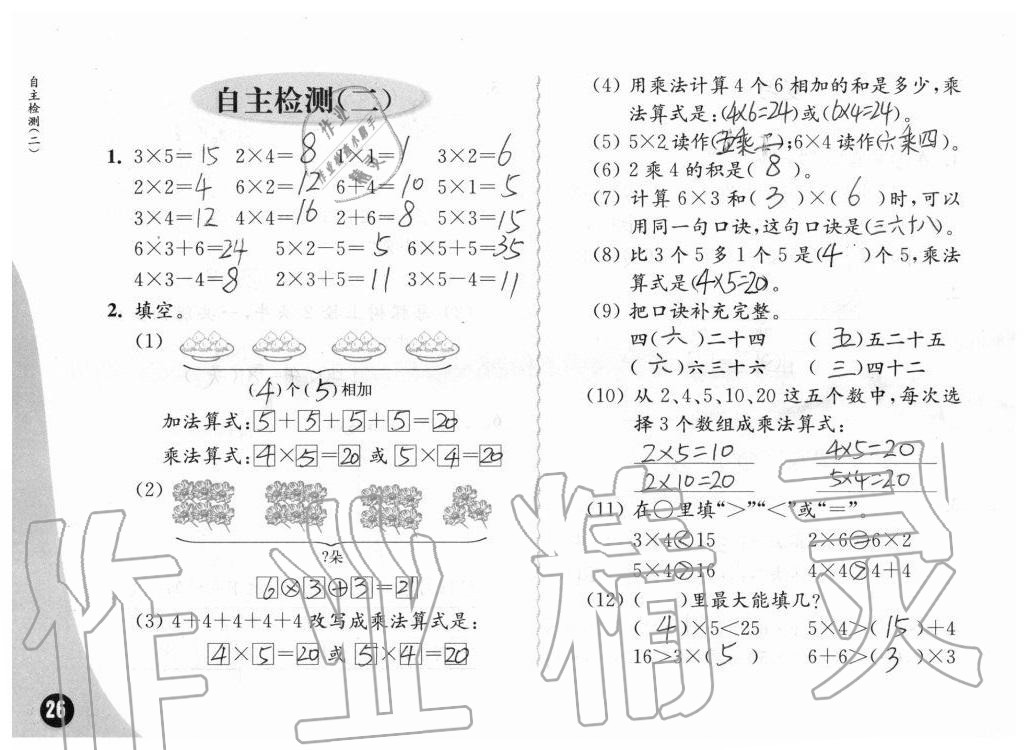 自主检测(二)
自主检测(二)
1. 3×5=15 2×4=8 1×1=1 3×2=6
2×2=4 6×2=12 6+4=10 5×1=5
3×4=12 4×4=16 2+6=8 5×3=15
6×3+6=24 5×2-5=5 6×5+5=35
4×3-4=8 2×3+5=11 3×5-4=11
2. 填空。
(1)
(4)个(5)相加
加法算式:5+5+5+5=20
乘法算式:4×5=20 或 5×4=20
(2)
?朵
6×3+3=21
(3) 4+4+4+4+4 改写成乘法算式是:
4×5=20 或 5×4=20
26
(4) 用乘法计算 4 个 6 相加的和是多少,乘
法算式是:(4×6=24)或(6×4=24)。
(5) 5×2 读作(五乘二);6×4 读作(六乘四)。
(6) 2 乘 4 的积是( 8 )。
(7) 计算 6×3 和( 3 )×( 6 )时,可以
用同一句口诀,这句口诀是(三六十八)。
(8) 比 3 个 5 多 1 个 5 是(4 )个 5,乘法
算式是(4×5=20)。
(9) 把口诀补充完整。
四(六)二十四 (五)五二十五
(六)六三十六 (三)四十二
(10) 从 2、4、5、10、20 这五个数中,每次选
择 3 个数组成乘法算式:
2×5=10 4×5=20
2×10=20 5×4=20
(11) 在○里填“>”“<”或“=”。
3×4<15 2×6=6×2
5×4>16 4×4>4+4
(12) ( )里最大能填几?
( 4 )×5<25 5×4>( 15 )+4
16>3×( 5 ) 6+6>( 3 )×3
作业精灵